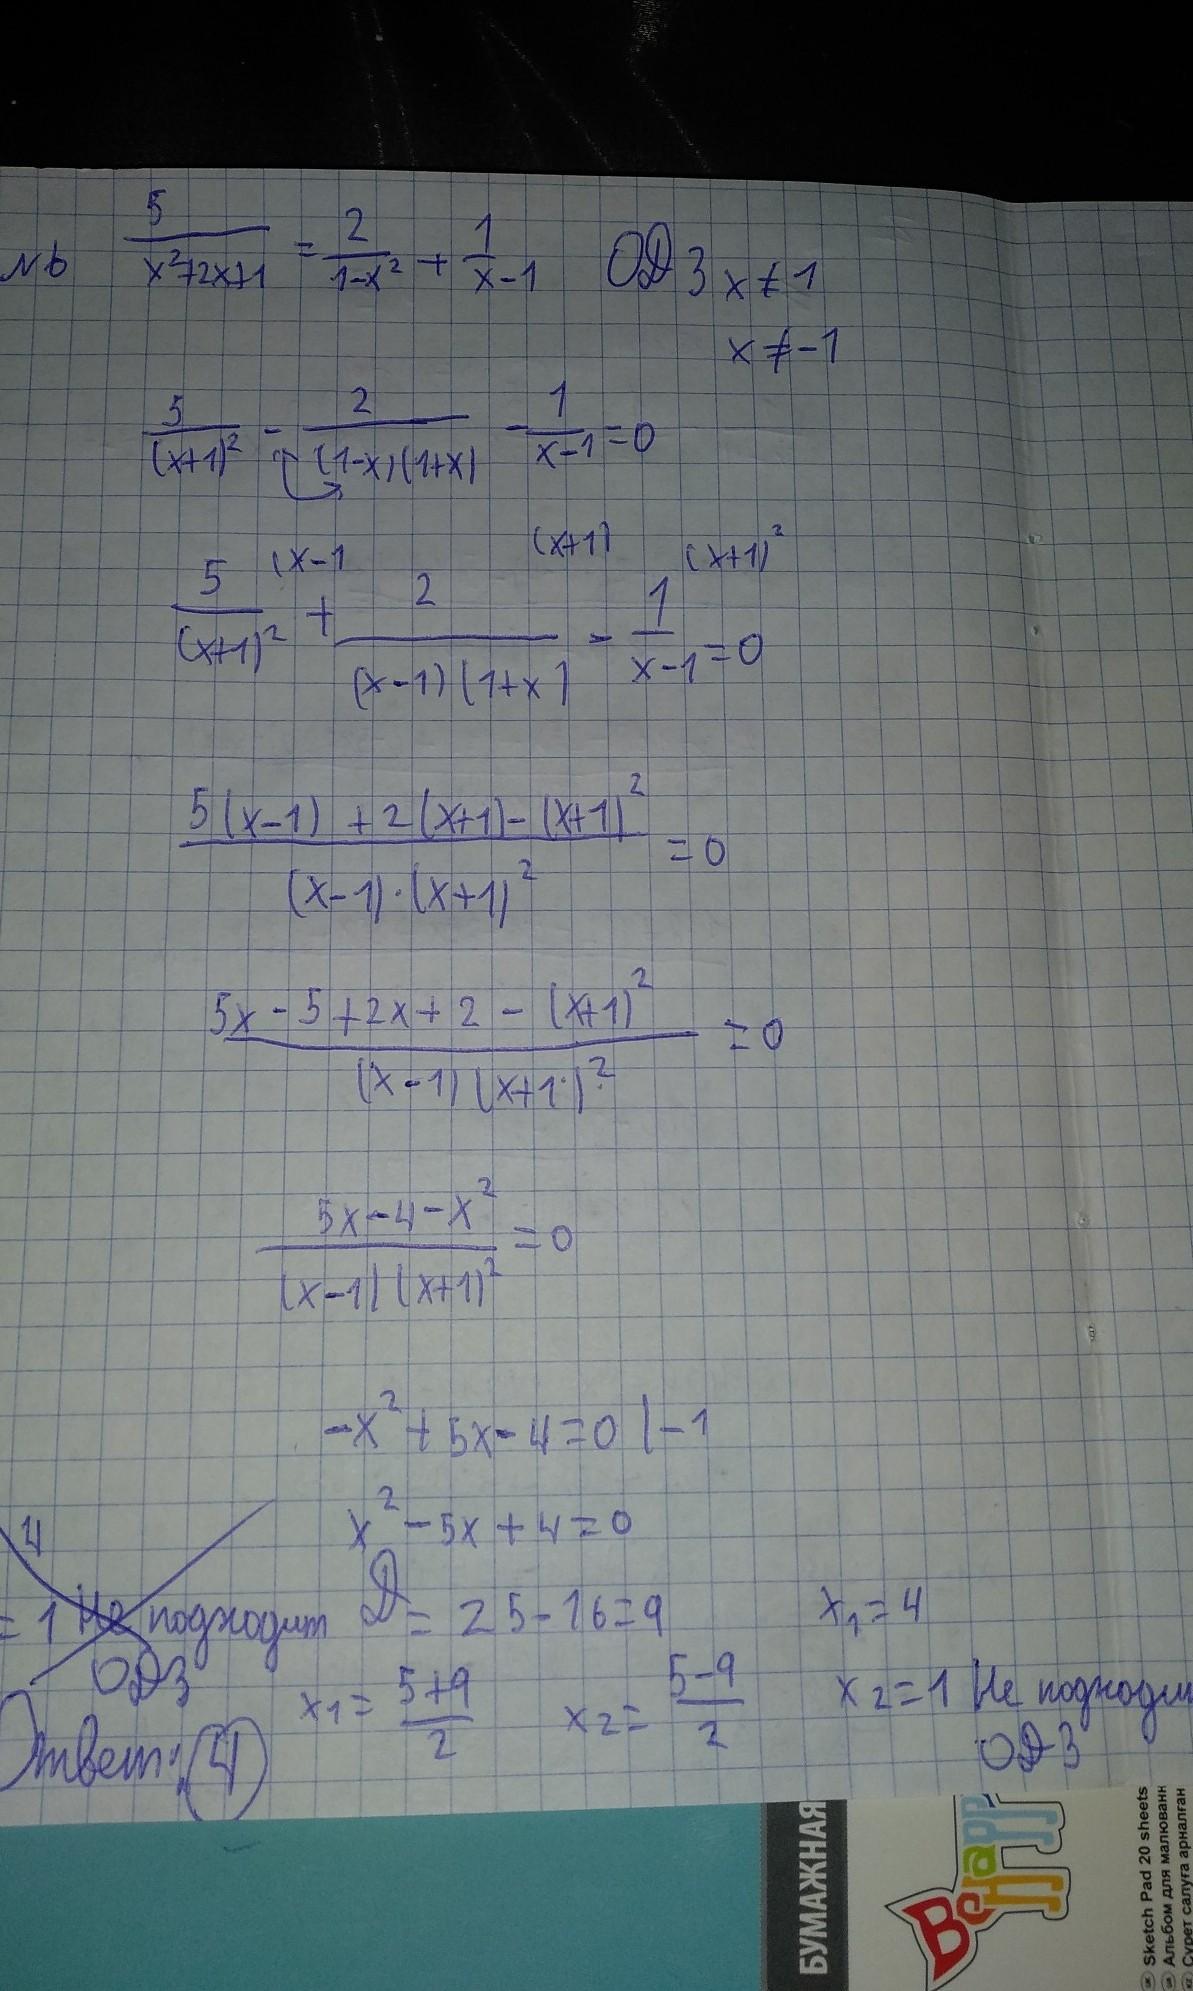 №6 5/(x²+2x+1) = 2/(1-x²) + 1/(x-1) ОДЗ x≠1
x≠-1
5/(x+1)² - 2/((1-x)(1+x)) - 1/(x-1) = 0
(x-1 (x+1) (x+1)²
5/(x+1)² + 2/((x-1)(1+x)) - 1/(x-1) = 0
(5(x-1) + 2(x+1) - (x+1)²)/((x-1)·(x+1)²) = 0
(5x-5+2x+2-(x+1)²)/((x-1)(x+1)²) = 0
(5x-4-x²)/((x-1)(x+1)²) = 0
-x²+5x-4=0 |-1
x²-5x+4=0
4
= 1 Не подходит
ОДЗ
D = 25-16=9
x₁=4
x₁ = (5+9)/2 x₂ = (5-9)/2
x₂=1 Не подходи
ОДЗ
Ответ: 4
БУМАЖНАЯ
Sketch Pad 20 sheets
Альбом для малюванн
Сурет салуға арналған